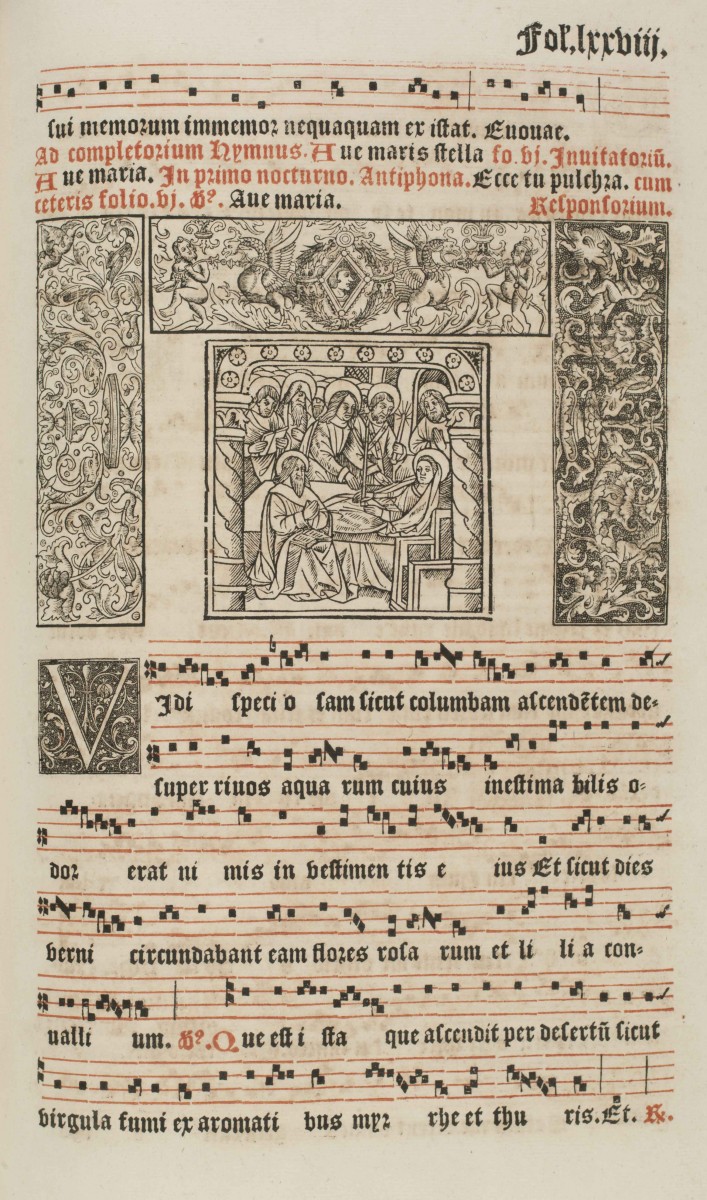 Fol.lxxviij.
sui memorum immemor nequaquam ex istat. Euouae.
Ad completorium Hymnus. Aue maris stella fo.vj. Inuitatoriū.
Aue maria. In primo nocturno. Antiphona. Ecce tu pulchra. cum
ceteris folio.vj. ℣. Aue maria. Responsorium.
VIdi speci o sam sicut columbam ascendētem de-
super riuos aqua rum cuius inestima bilis o-
dor erat ni mis in vestimen tis e ius Et sicut dies
verni circundabant eam flores rosa rum et li li a con-
ualli um. ℣. Que est i sta que ascendit per desertū sicut
virgula fumi ex aromati bus myr rhe et thu ris. Et. ℟.